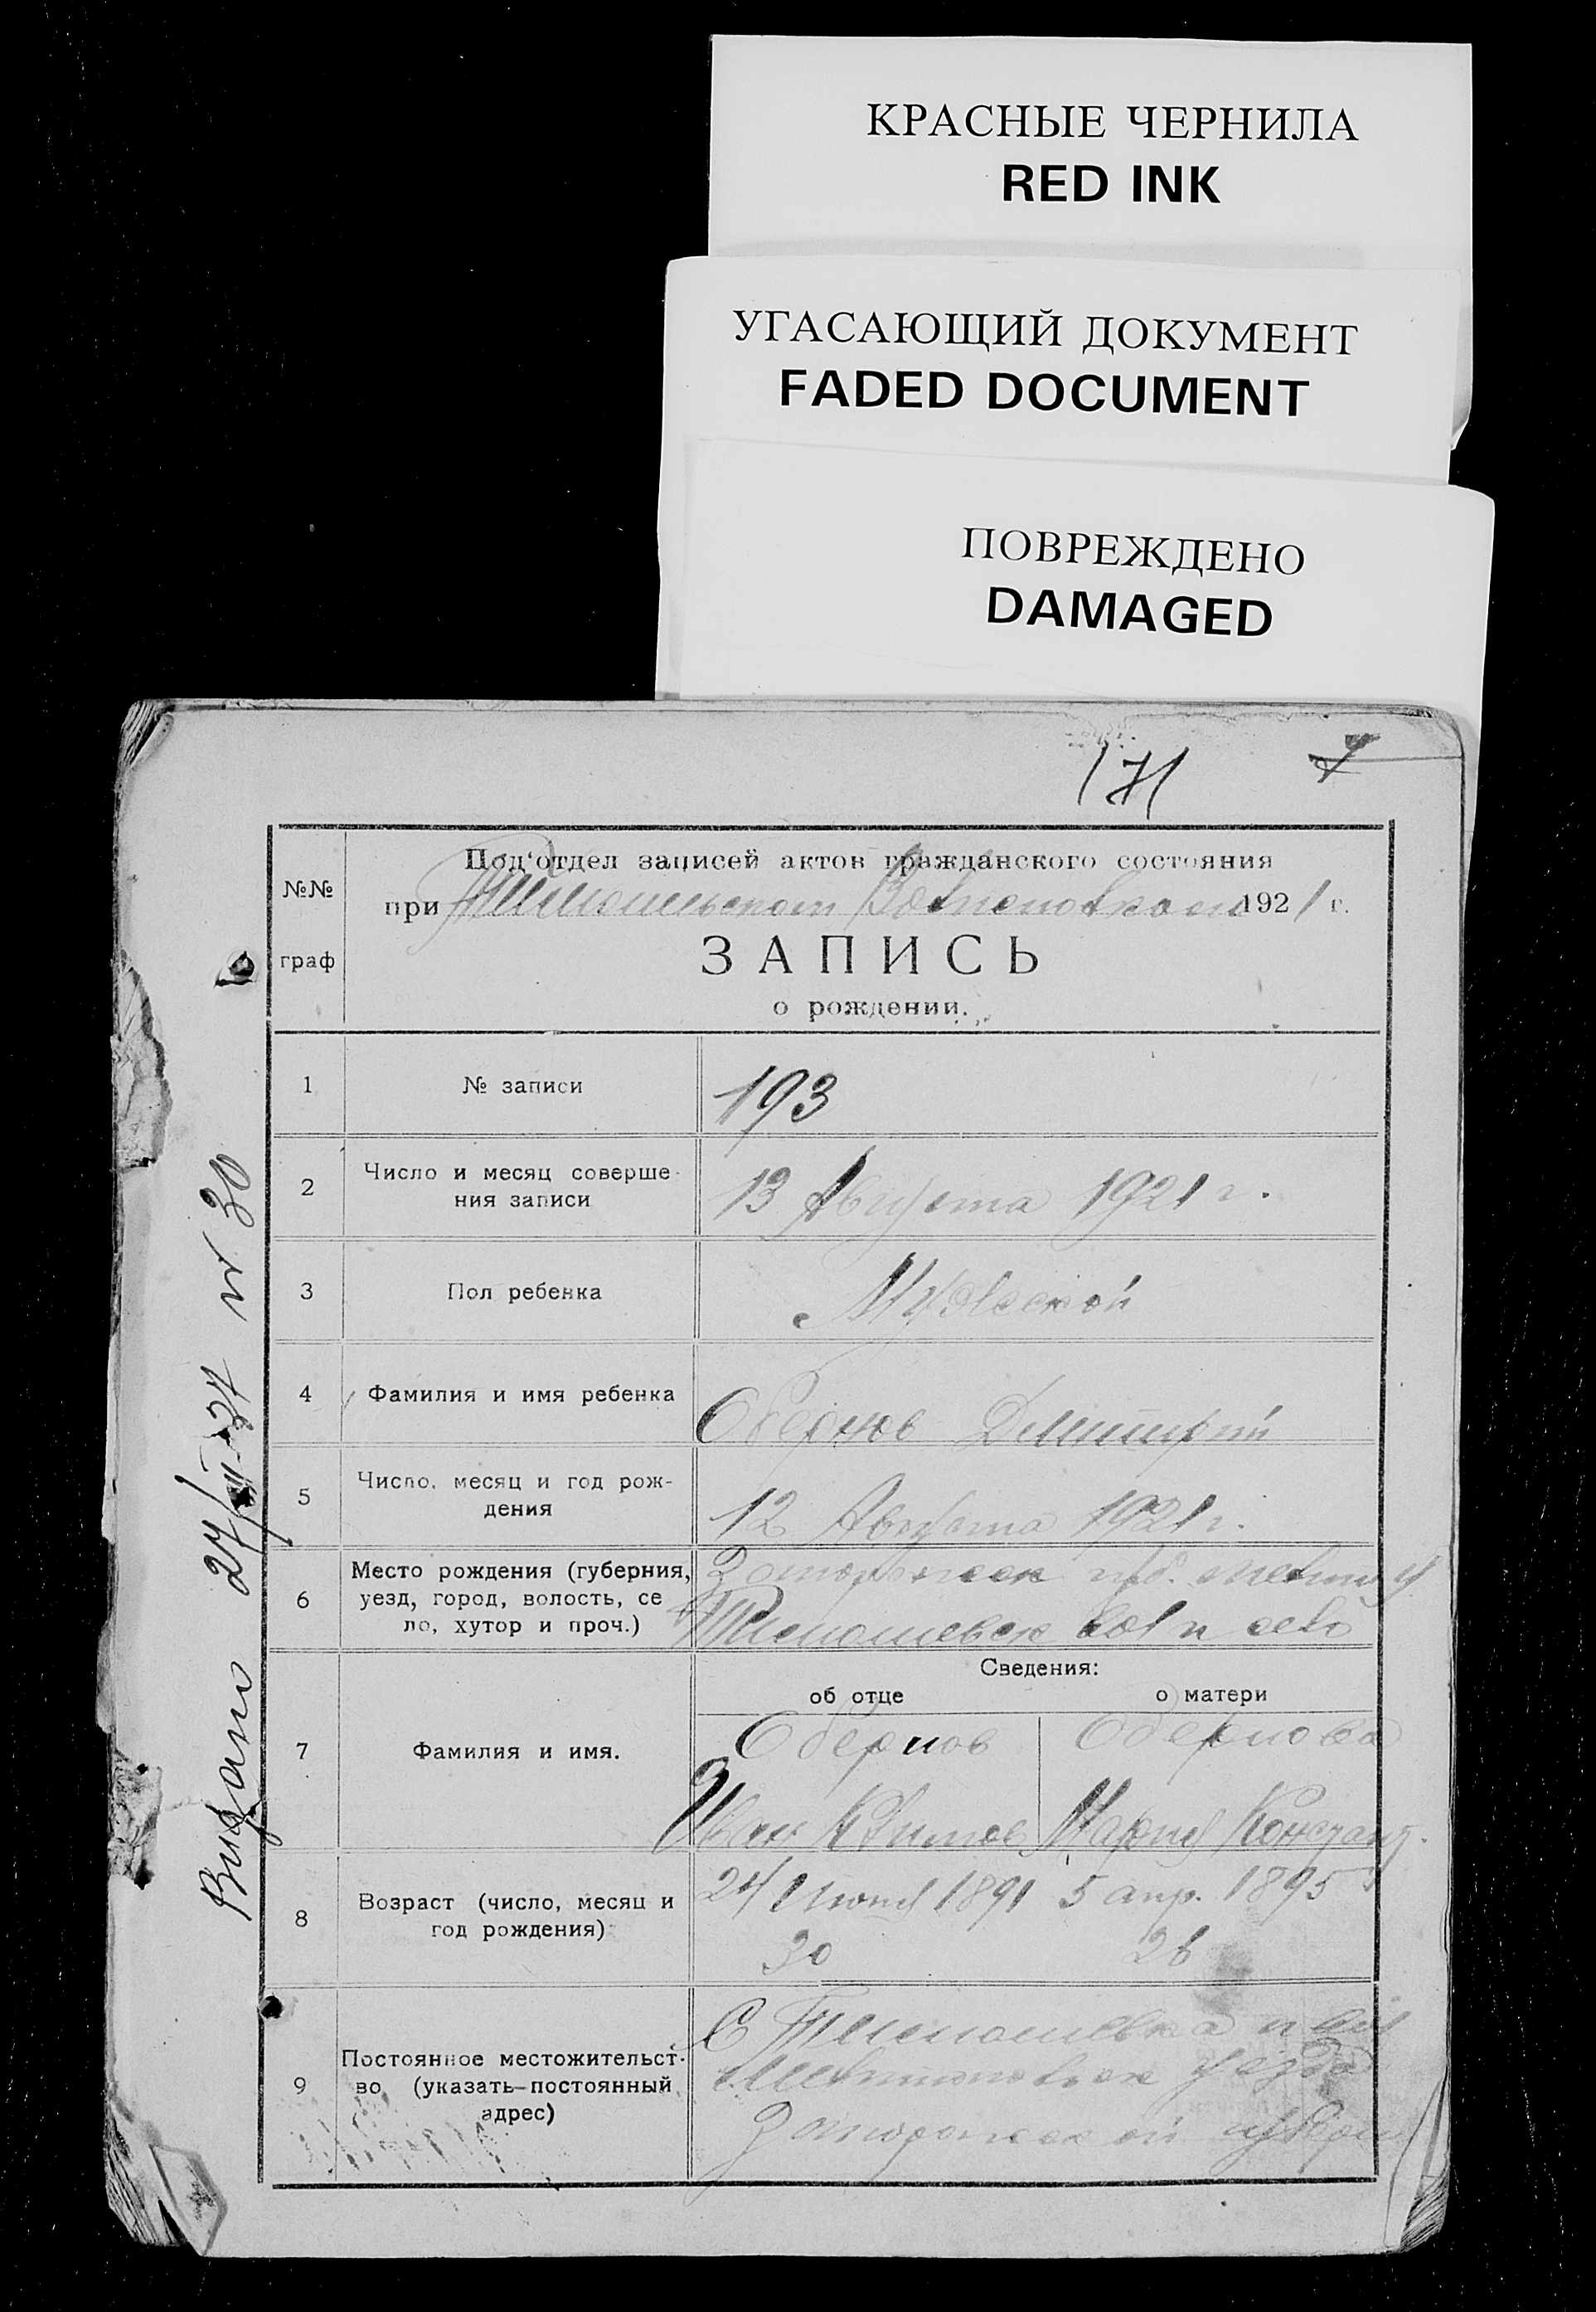 КРАСНЫЕ ЧЕРНИЛА
RED INK
УГАСАЮЩИЙ ДОКУМЕНТ
FADED DOCUMENT
ПОВРЕЖДЕНО
DAMAGED
171
№№
граф
Под'отдел записей актов гражданского состояния
при 1921 г.
ЗАПИСЬ
о рождении.
1 № записи 193
2 Число и месяц соверше-
ния записи 13 Августа 1921 г.
3 Пол ребенка Мужской
4 Фамилия и имя ребенка Обернов Дмитрий
5 Число, месяц и год рож-
дения 12 Августа 1921 г.
6 Место рождения (губерния,
уезд, город, волость, се
ло, хутор и проч.)
Запорожск губ.
Тимошевск вол и село
Сведения:
об отце о матери
7 Фамилия и имя.
Обернов Обернова
Иван Мария Констант.
8 Возраст (число, месяц и
год рождения)
24 1891 5 апр. 1895
30 26
9 Постоянное местожительст-
во (указать-постоянный
адрес)
С Тимошевка и вол
уезда
Запорожской губерн
Видано 27/ 37 30